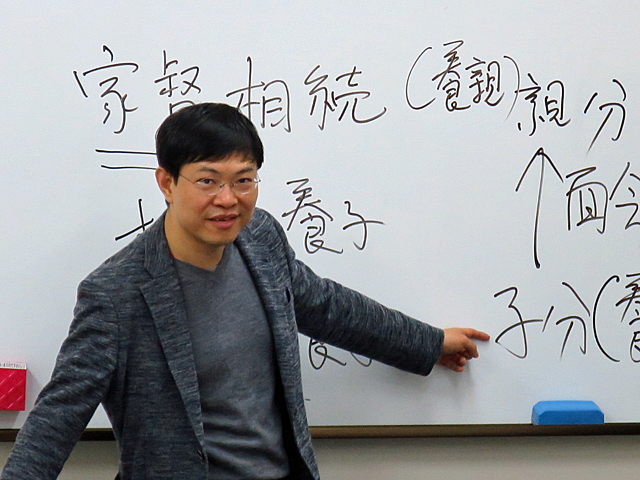 家督相続 (養親) 親分
養子
面会
子分(養